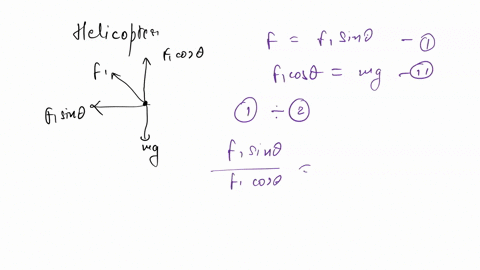 Helicopter
f₁ cosθ
f₁
f₁ sinθ
mg
f = f₁ sinθ – ①
f₁ cosθ = mg – ⑪
① ÷ ②
f₁ sinθ
f₁ cosθ =